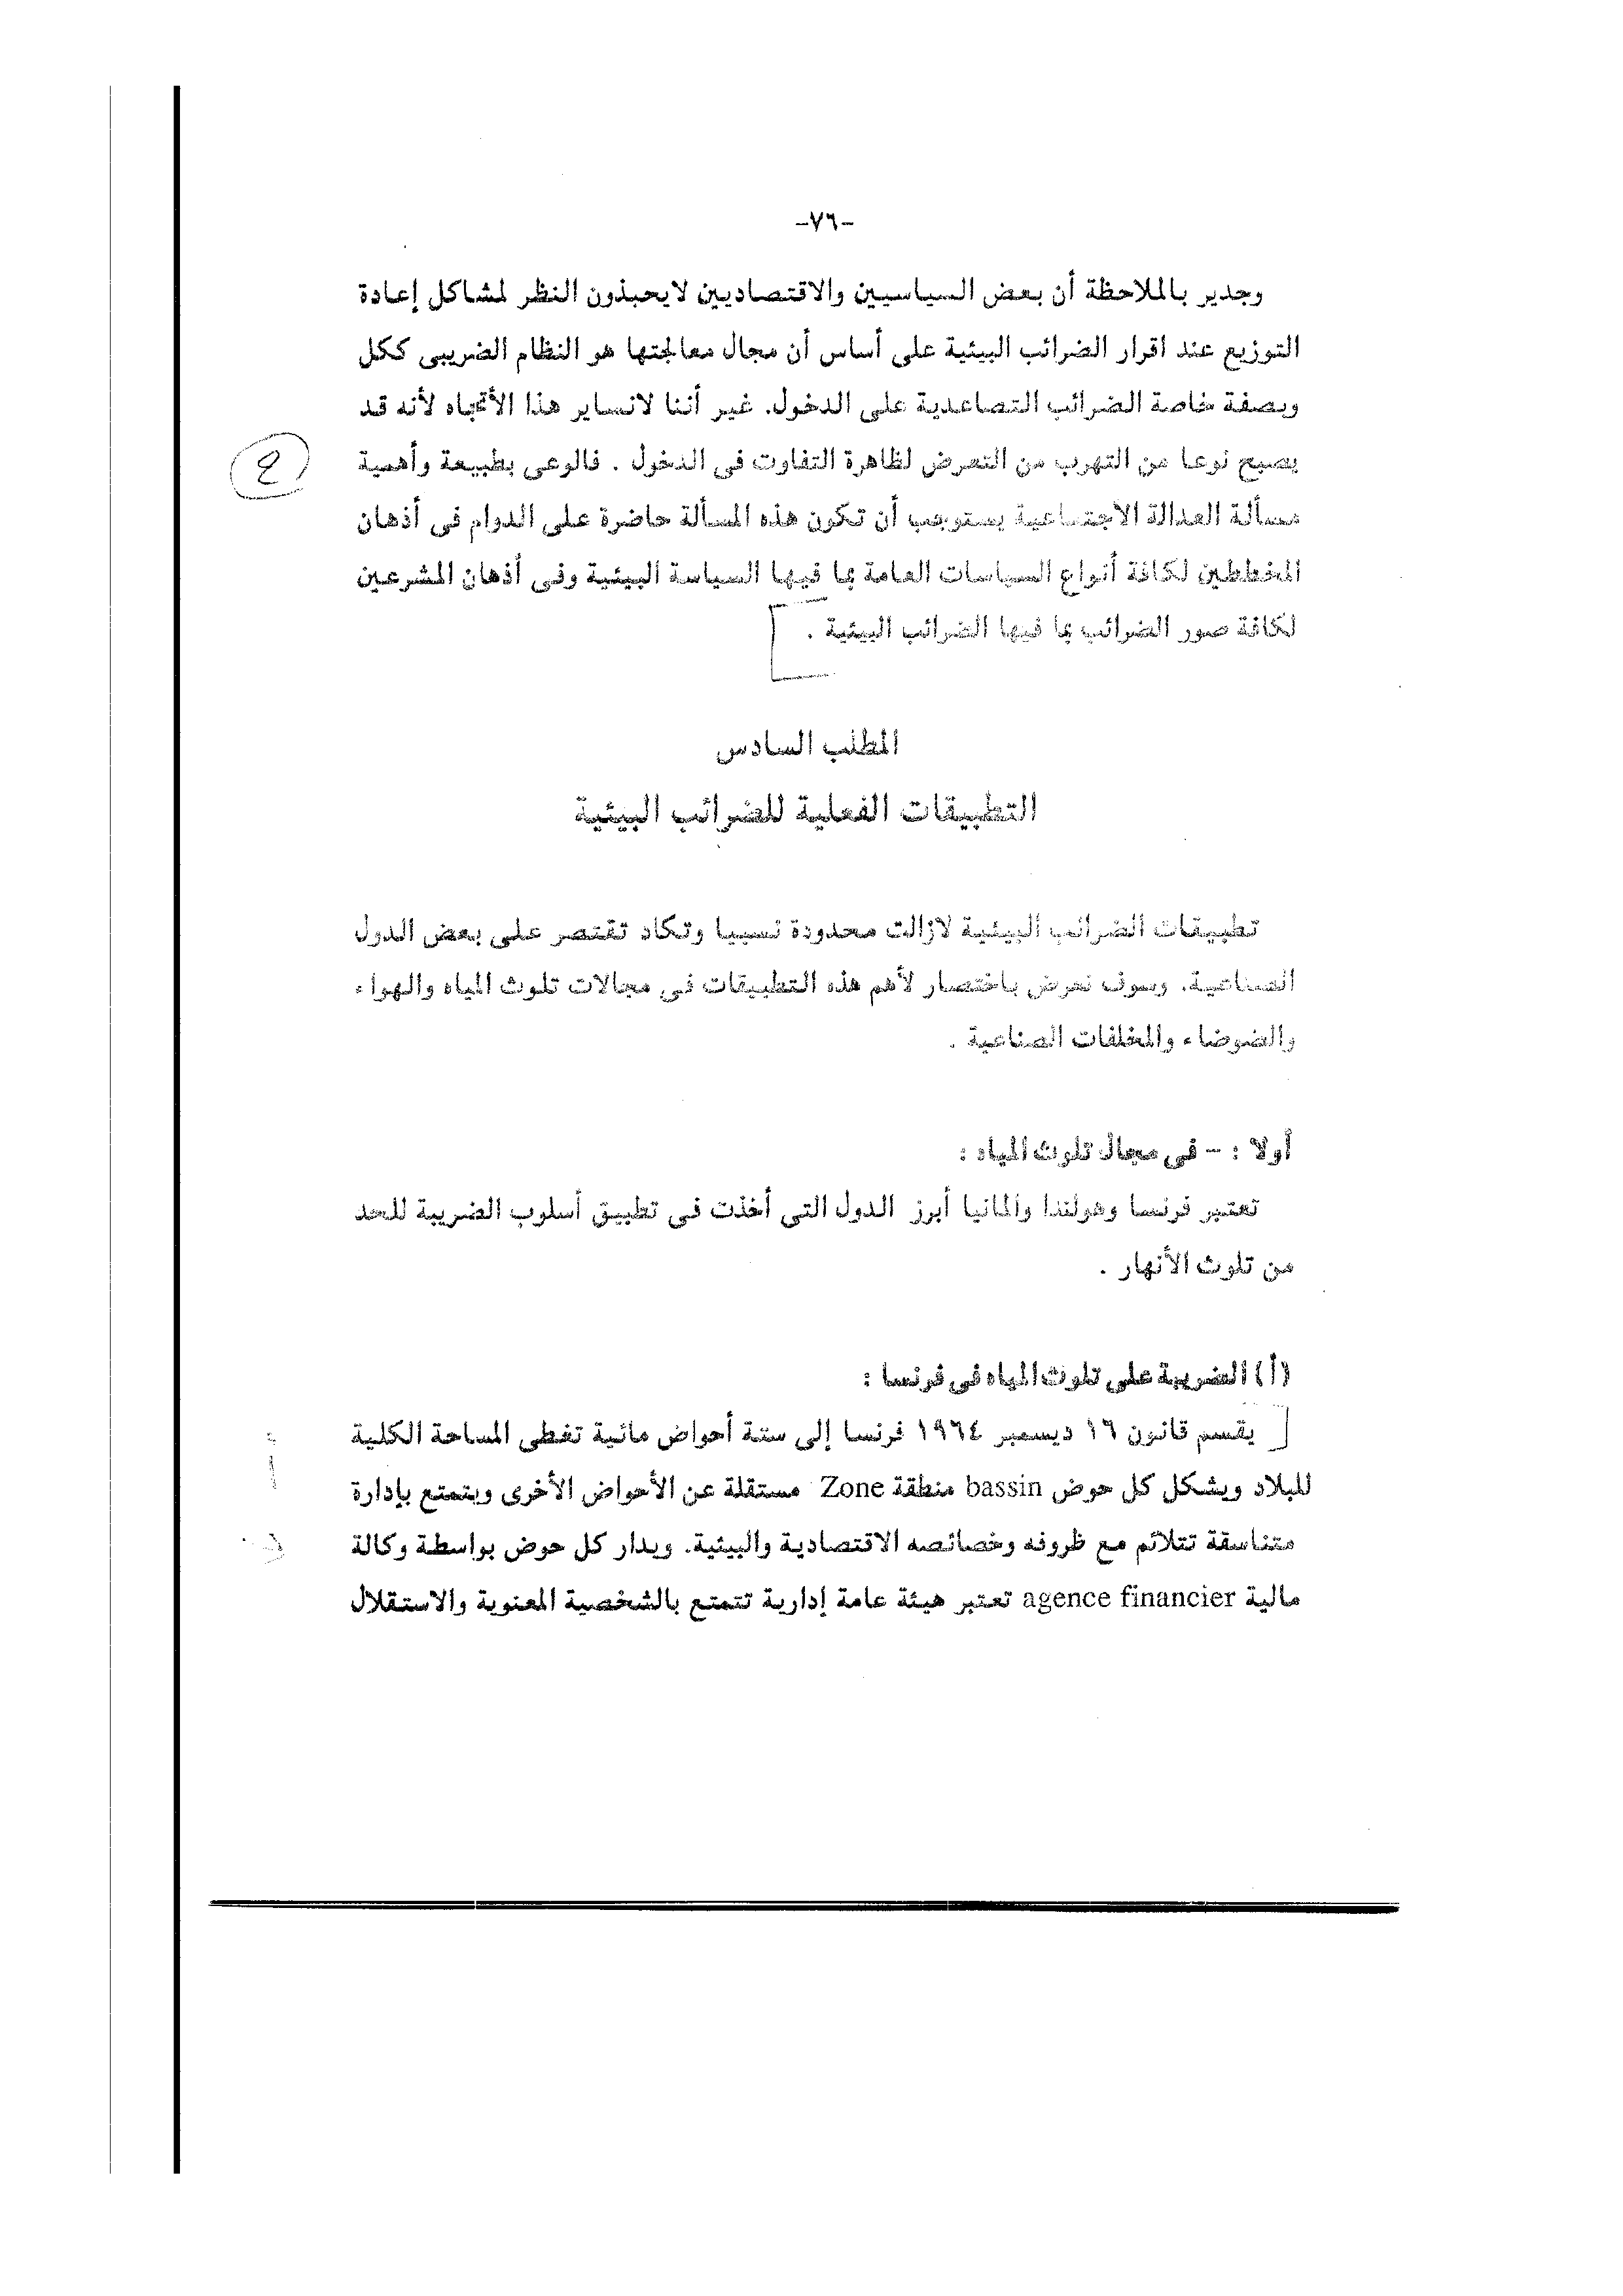 -٧٦-
وجدير بالملاحظة أن بعض السياسيين والاقتصاديين لايحبذون النظر لمشاكل إعادة
التوزيع عند اقرار الضرائب البيئية على أساس أن مجال معالجتها هو النظام الضريبى ككل
وبصفة خاصة الضرائب التصاعدية على الدخول. غير أننا لانساير هذا الأتجاه لأنه قد
يصبح نوعا من التهرب من التعرض لظاهرة التفاوت فى الدخول . فالوعى بطبيعة وأهمية
مسألة العدالة الاجتماعية يستوجب أن تكون هذه المسألة حاضرة على الدوام فى أذهان
المخططين لكافة أنواع السياسات العامة بما فيها السياسة البيئية وفى أذهان المشرعين
لكافة صور الضرائب بما فيها الضرائب البيئية .
المطلب السادس
التطبيقات الفعلية للضرائب البيئية
تطبيقات الضرائب البيئية لازالت محدودة نسبيا وتكاد تقتصر على بعض الدول
الصناعية. وسوف نعرض باختصار لأهم هذه التطبيقات فى مجالات تلوث المياه والهواء
والضوضاء والمخلفات الصناعية .
أولا : - فى مجال تلوث المياه :
تعتبر فرنسا وهولندا والمانيا أبرز الدول التى أخذت فى تطبيق أسلوب الضريبة للحد
من تلوث الأنهار .
(أ) الضريبة على تلوث المياه فى فرنسا :
يقسم قانون ١٦ ديسمبر ١٩٦٤ فرنسا إلى ستة أحواض مائية تغطى المساحة الكلية
للبلاد ويشكل كل حوض bassin منطقة Zone مستقلة عن الأحواض الأخرى ويتمتع بإدارة
متناسقة تتلائم مع ظروفه وخصائصه الاقتصادية والبيئية. ويدار كل حوض بواسطة وكالة
مالية agence financier تعتبر هيئة عامة إدارية تتمتع بالشخصية المعنوية والاستقلال